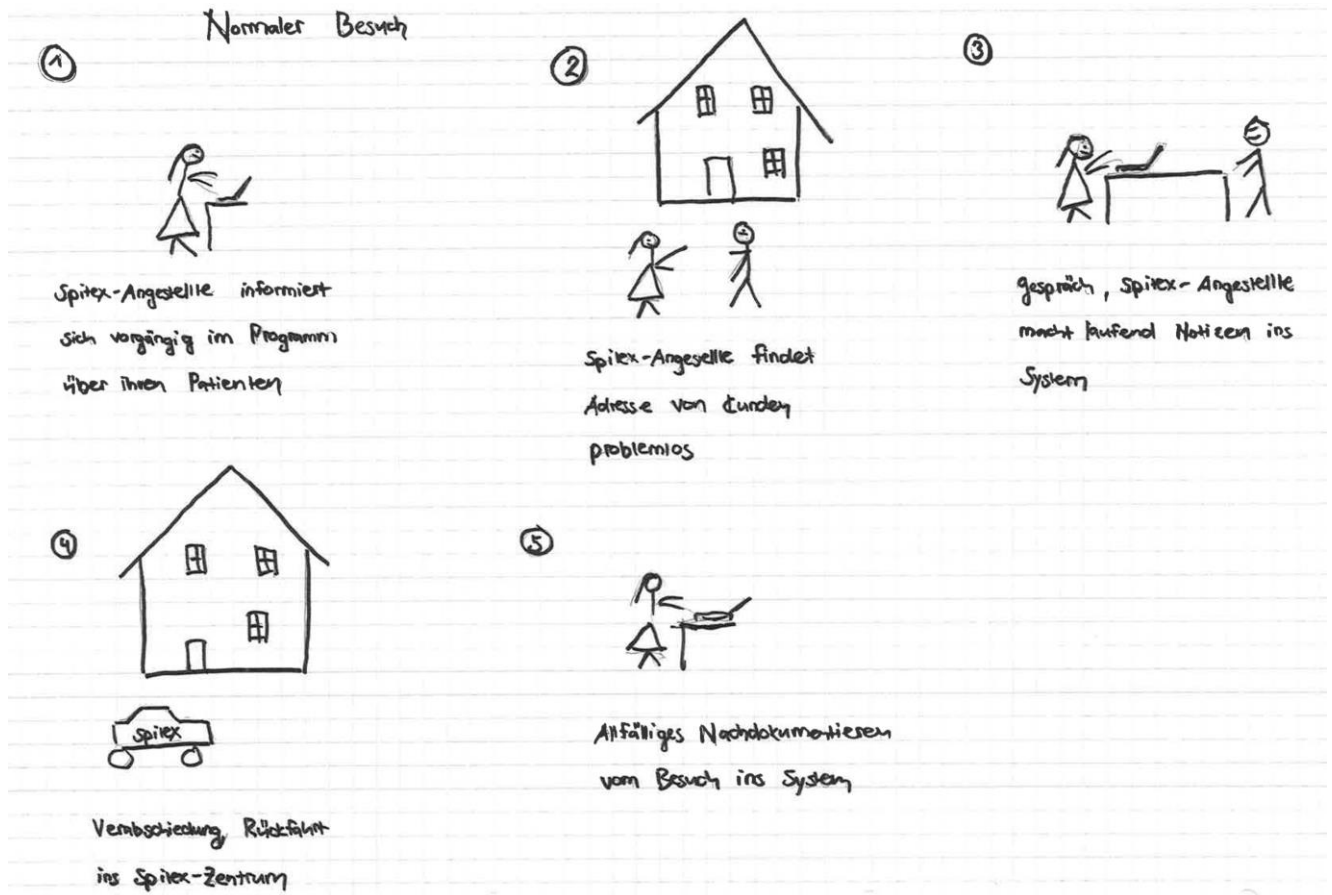 Normaler Besuch
1
Spitex-Angestellte informiert
sich vorgängig im Programm
über ihren Patienten
2
Spitex-Angestelle findet
Adresse von Kunden
problemlos
3
gespräch, Spitex-Angestellte
macht laufend Notizen ins
System
4
Spitex
Verabschiedung, Rückfahrt
ins Spitex-Zentrum
5
Allfälliges Nachdokumentieren
vom Besuch ins System